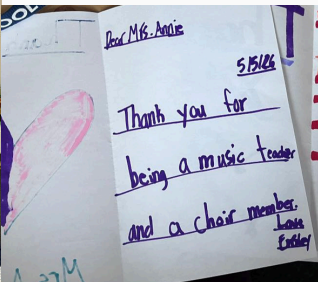 Dear Mrs. Annie
5/5/26
Thank you for
being a music teacher
and a choir member.
Love